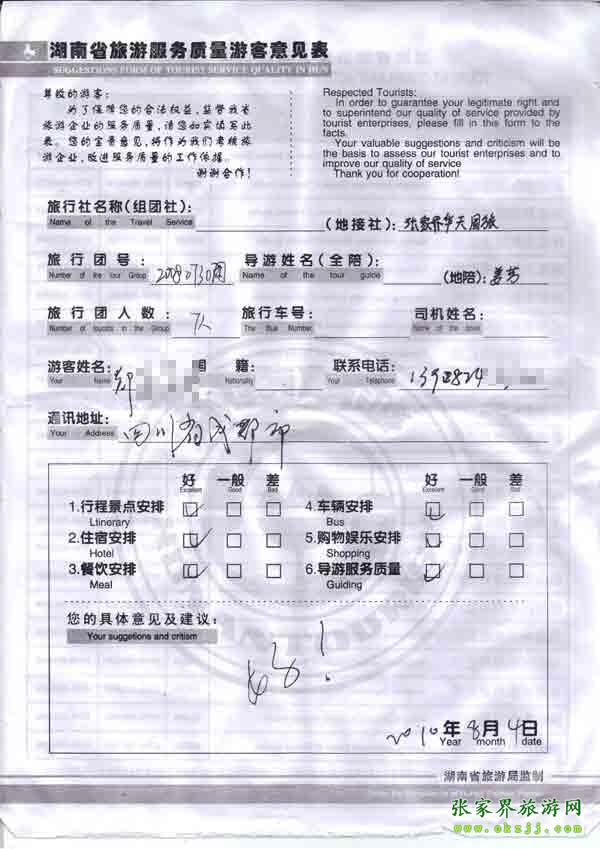 湖南省旅游服务质量游客意见表
SUGGESTIONS FORM OF TOURIST SERVICE QUALITY IN HUN
尊敬的游客:
为了保障您的合法权益,监督我省
旅游企业的服务质量,请您如实填写此
表。您的宝贵意见,将作为我们考核旅
游企业,改进服务质量的工作依据。
谢谢合作!
Respected Tourists:
In order to guarantee your legitimate right and
to superintend our quality of service provided by
tourist enterprises, please fill in this form to the
facts.
Your valuable suggestions and criticism will be
the basis to assess our tourist enterprises and to
improve our quality of service
Thank you for cooperation!
旅行社名称(组团社): (地接社): 张家界中天国旅
Name of the Travel Service
旅行团号: 导游姓名(全陪): (地陪):
Number of the tour Group Name of the tour guide
旅行团人数: 7人 旅行车号: 司机姓名:
Number of tourists in the Group The Bus Number Name of the driver
游客姓名: 郑 国籍: 联系电话:
Your Name Nationality Your Telephone
通讯地址: 四川省成都市
Your Address
好 一般 差 好 一般 差
Excellent Good Bad Excellent Good Bad
1.行程景点安排 4.车辆安排
Ltinerary Bus
2.住宿安排 5.购物娱乐安排
Hotel Shopping
3.餐饮安排 6.导游服务质量
Meal Guiding
您的具体意见及建议:
Your suggetions and critism
好!
2010年8月4日
Year month day
湖南省旅游局监制
张家界旅游网
www.okzjj.com